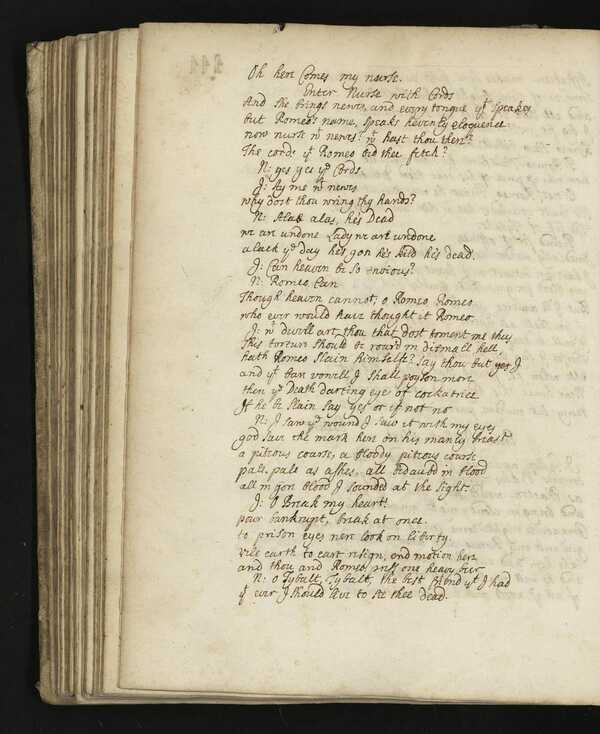 Oh here Comes my nurse.
Enter Nurse with Cords
And she brings newes, and every tongue yt speakes
but Romeo's name, speaks hevenly eloquence
now nurse wt newes? wt hast thou there?
The cords yt Romeo bid thee fetch?
N: yes yes ye Cords.
J: Ay me wt news
why dost thou wring thy hands?
N: Alas alas, he's Dead
we are undone Lady we are undone
a lack ye day he's gon he's kild he's dead.
J: Can heaven be so envious?
N: Romeo Can
Though heaven cannot, o Romeo Romeo
who ever would have thought it Romeo
J: wt divill art thou that dost torment me thus
This torture should be roard in dismall hell,
hath Romeo slain himselfe? Say thou but yes I
and yt bare vowell I shall poyson more
then ye Death darting eye of cockatrice
If he be slain say yes or if not no
N: I saw ye wound I saw it with my eyes
god save the mark here on his manly brest
a piteous course, a bloody piteous course
pale pale as ashes, all bedaub'd in blood
all in gore blood I sounded at the sight.
J: O Break my heart!
poor bankrupt, break at once.
to prison eyes nere look on liberty.
vile earth to eart resign, end motion here
and thou and Romeo press one heavy bier
N: O Tybalt, Tybalt, the best friend yt I had
yt ever I should live to see thee dead.